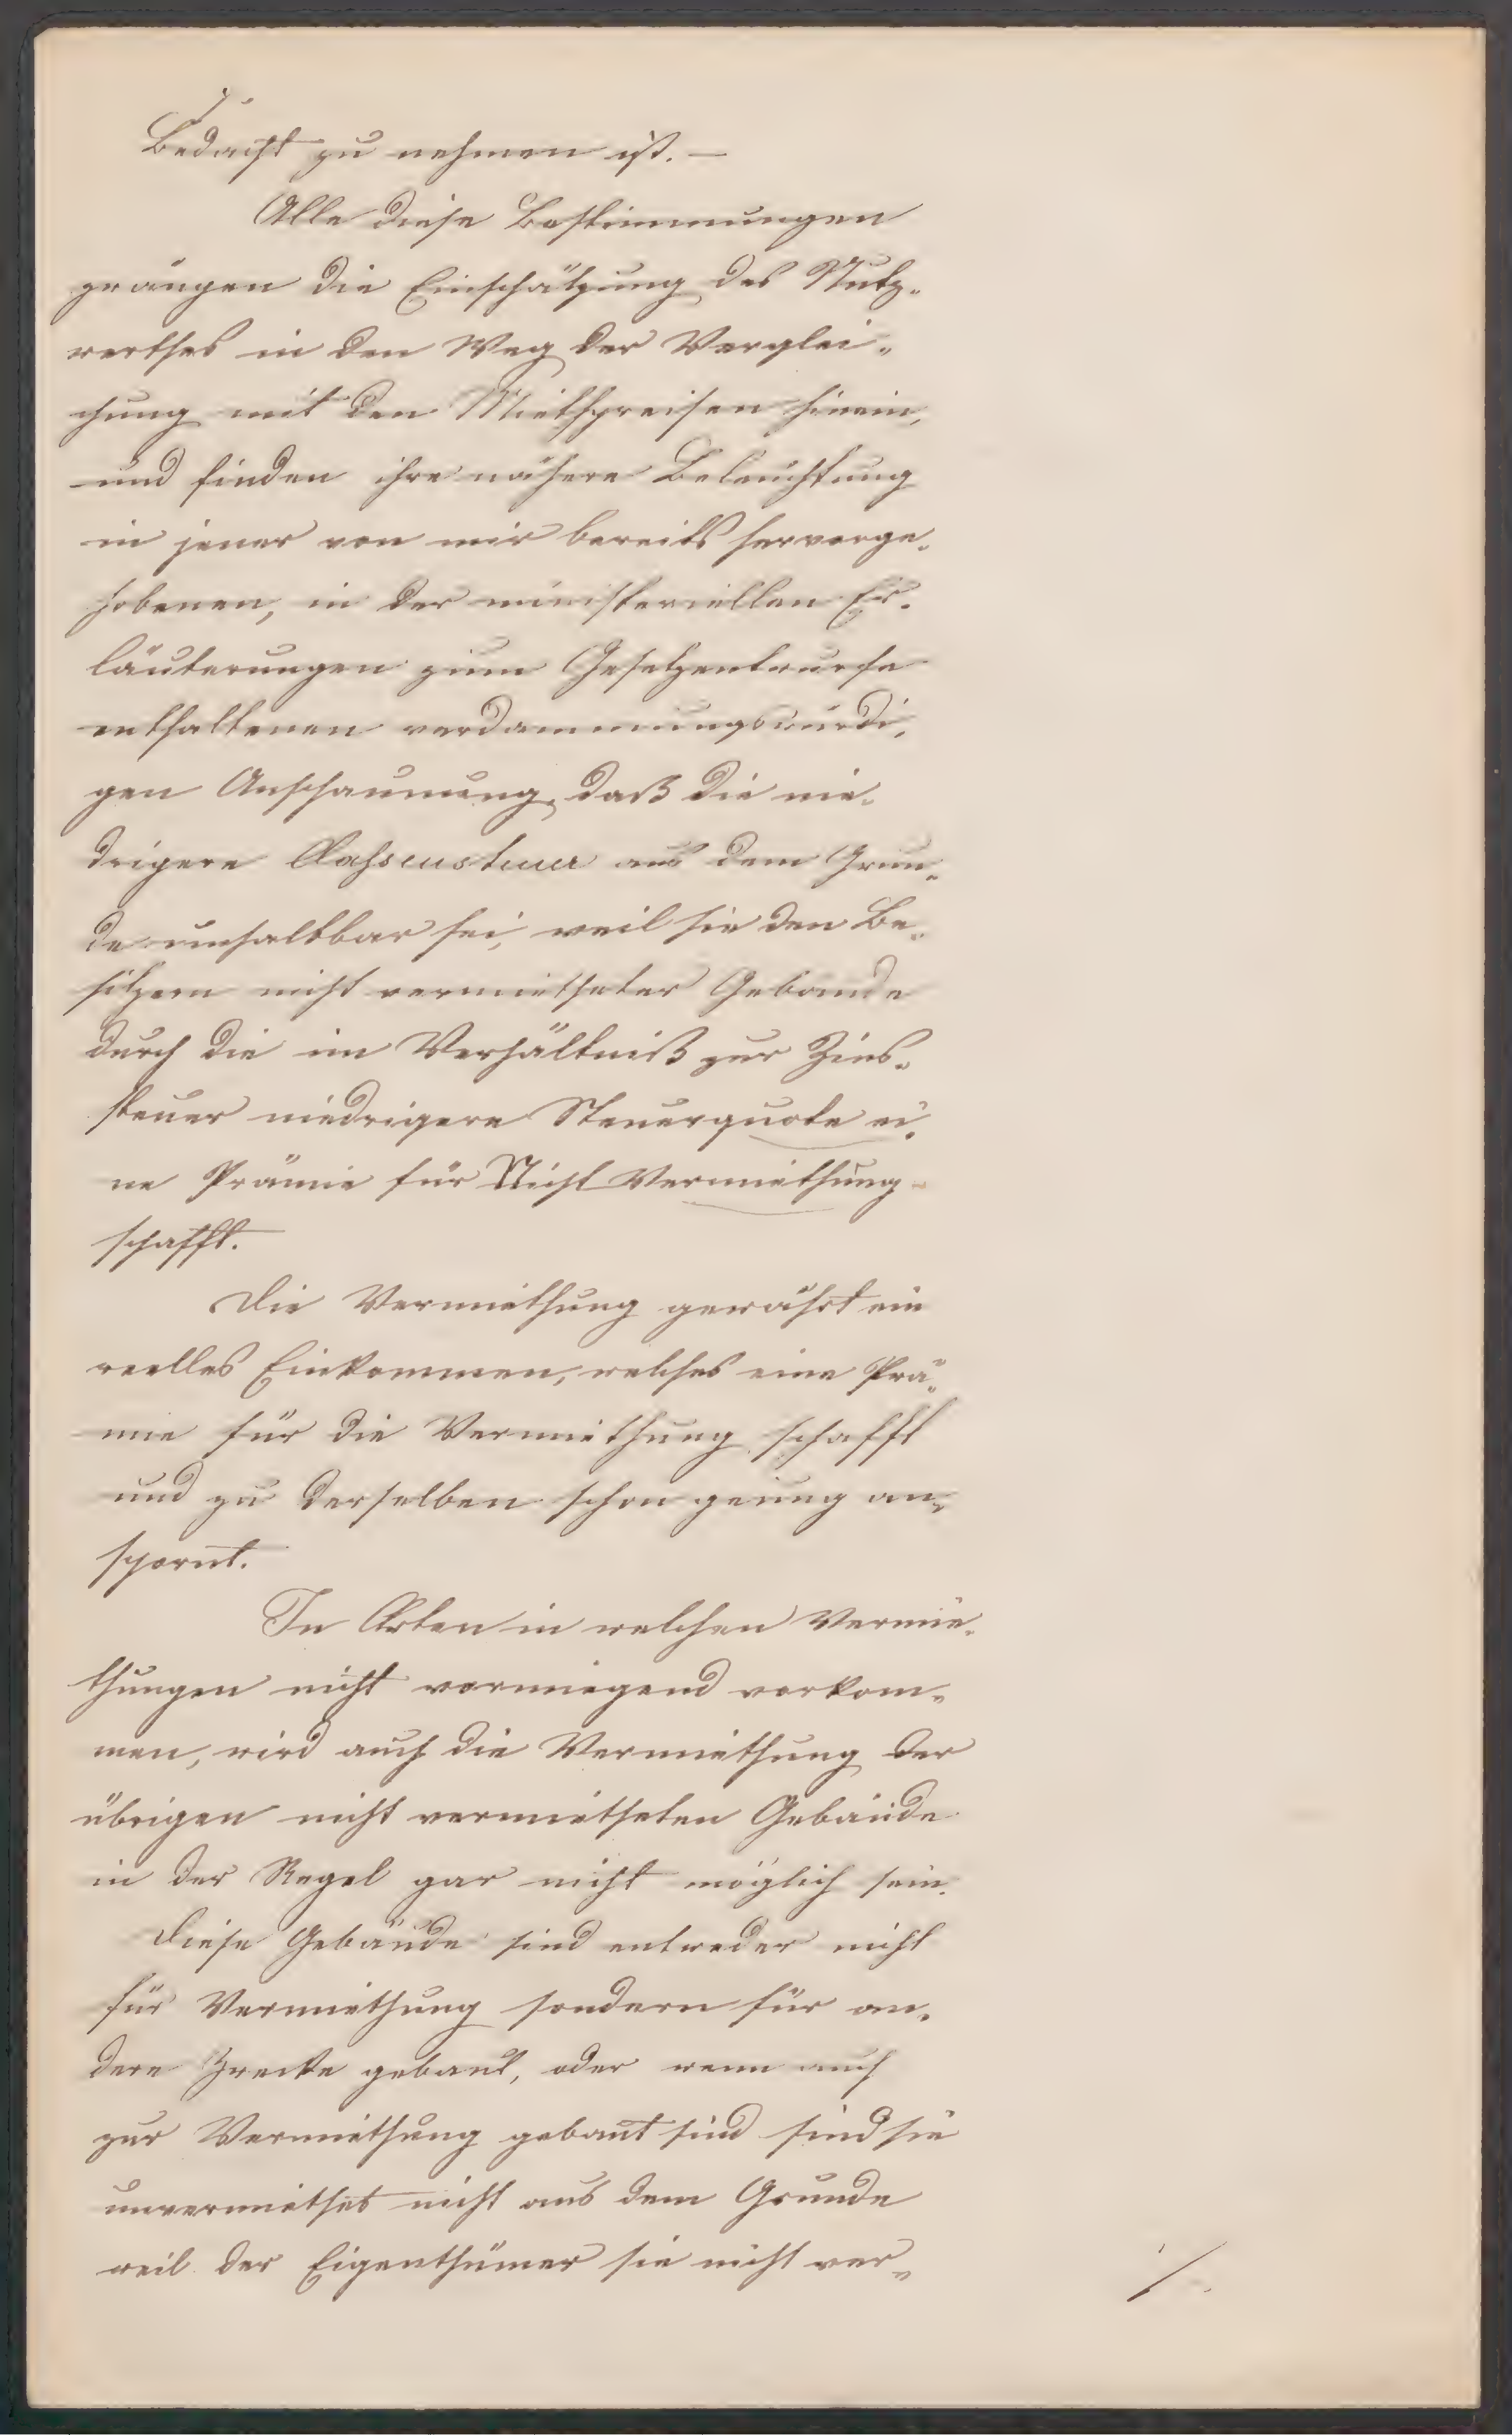 ./.
Bedacht zu nehmen ist. –
Alle diese Bestimmungen
zwängen die Einschätzung des Nutz-
werthes in den Weg der Verglei-
chung mit den Miethpreisen hinein,
und finden ihre nähere Beleuchtung
in jener von mir bereits hervorge-
hobenen, in der ministeriellen Er-
läuterungen zum Gesetzentwurfe
enthaltenen verdammungswürdi-
gen Anschauung, daß die nie-
drigere Classensteuer aus dem Grun-
de unhaltbar sei, weil sie den Be-
sitzern nicht vermietheter Gebäude
durch die im Verhältniß zur Zins-
steuer niedrigere Steuerquote ei-
ne Prämie für Nicht Vermiethung
schafft.
Die Vermiethung gewährt ein
reelles Einkommen, welches eine Prä-
mie für die Vermiethung schafft
und zu derselben schon genug an-
spornt.
In Orten in welchen Vermie-
thungen nicht vorwiegend vorkom-
men, wird auch die Vermiethung der
übrigen nicht vermietheten Gebäude
in der Regel gar nicht möglich sein.
Diese Gebäude sind entweder nicht
für Vermiethung sondern für an-
dere Zwecke gebaut, oder wenn auch
zur Vermiethung gebaut sind sind sie
unvermiethet nicht aus dem Grunde
weil der Eigenthümer sie nicht ver-
./.